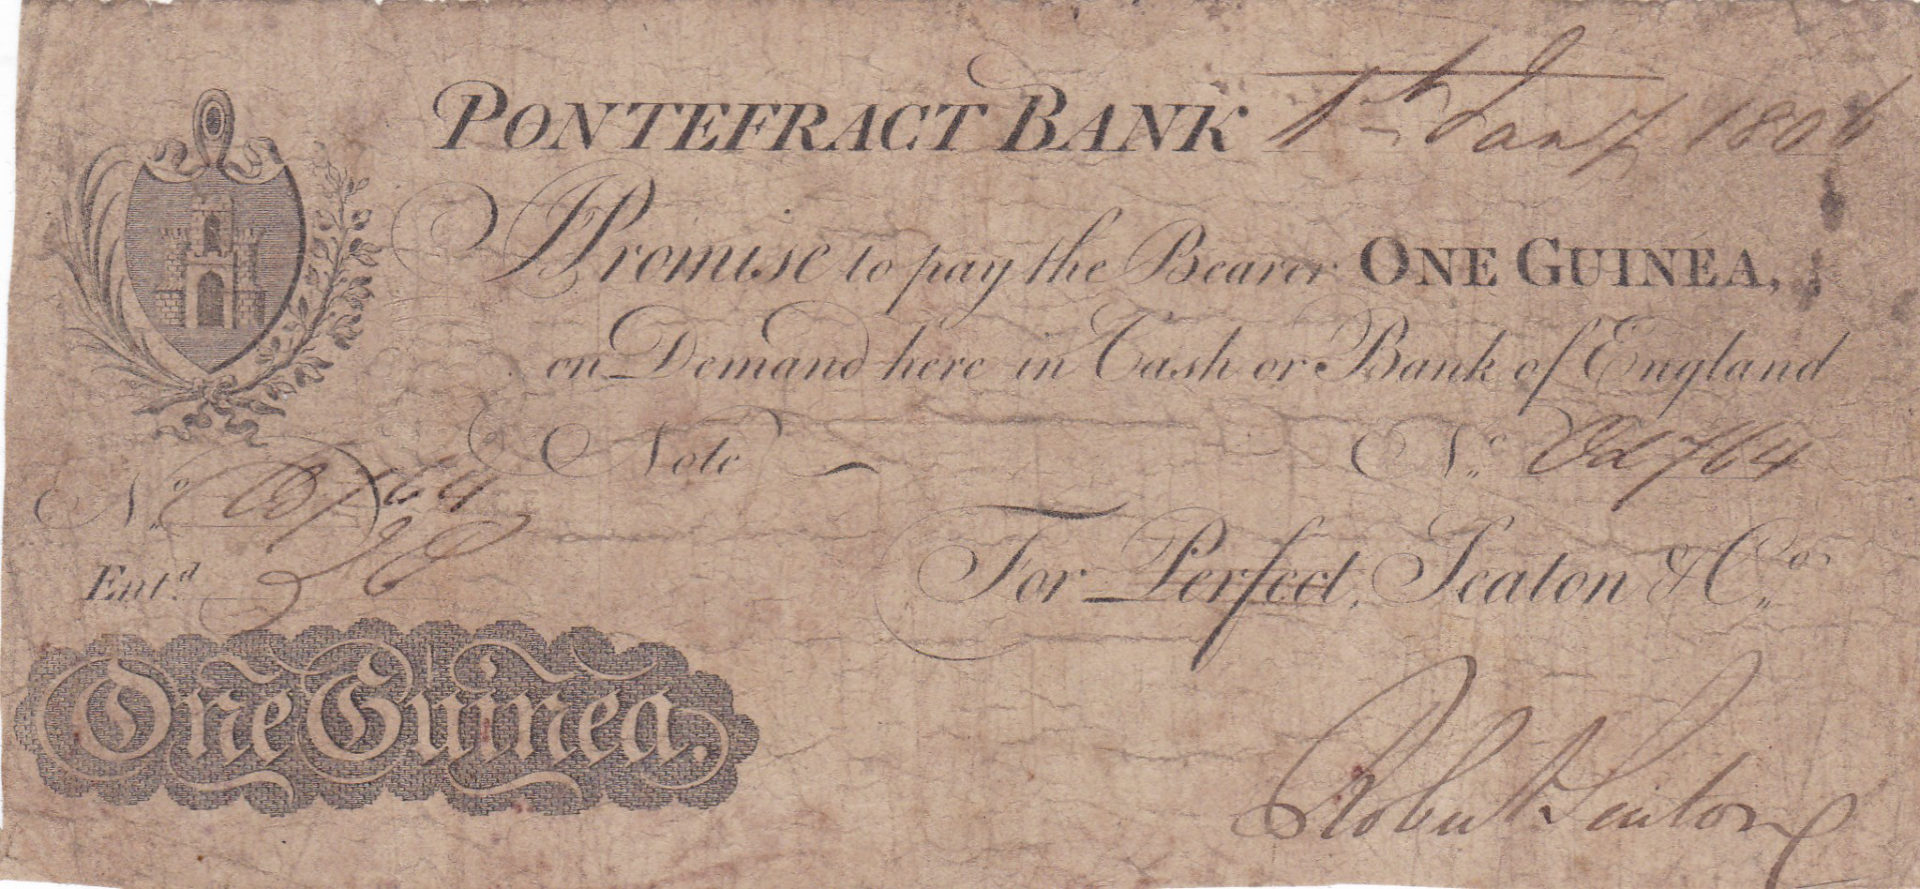 PONTEFRACT BANK 1st Jany 1806
I Promise to pay the Bearer ONE GUINEA,
on Demand here in Cash or Bank of England
Note No
No 764
Entd
For Perfect, Seaton & Co.
One Guinea.
Robert Seaton